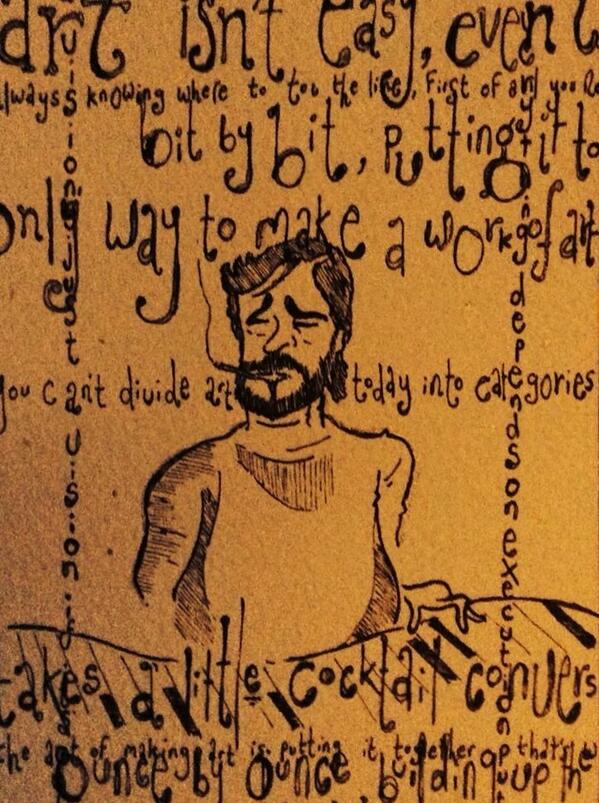 art isn't easy, even
always knowing where to tow the line, first of all you
bit by bit, putting it to
only way to make a work of art
you can't divide art today into categories
takes a little cocktail convers
the art of making art is putting it together that's
ounce by ounce, building up the
vision's just a vision if
depends on execution